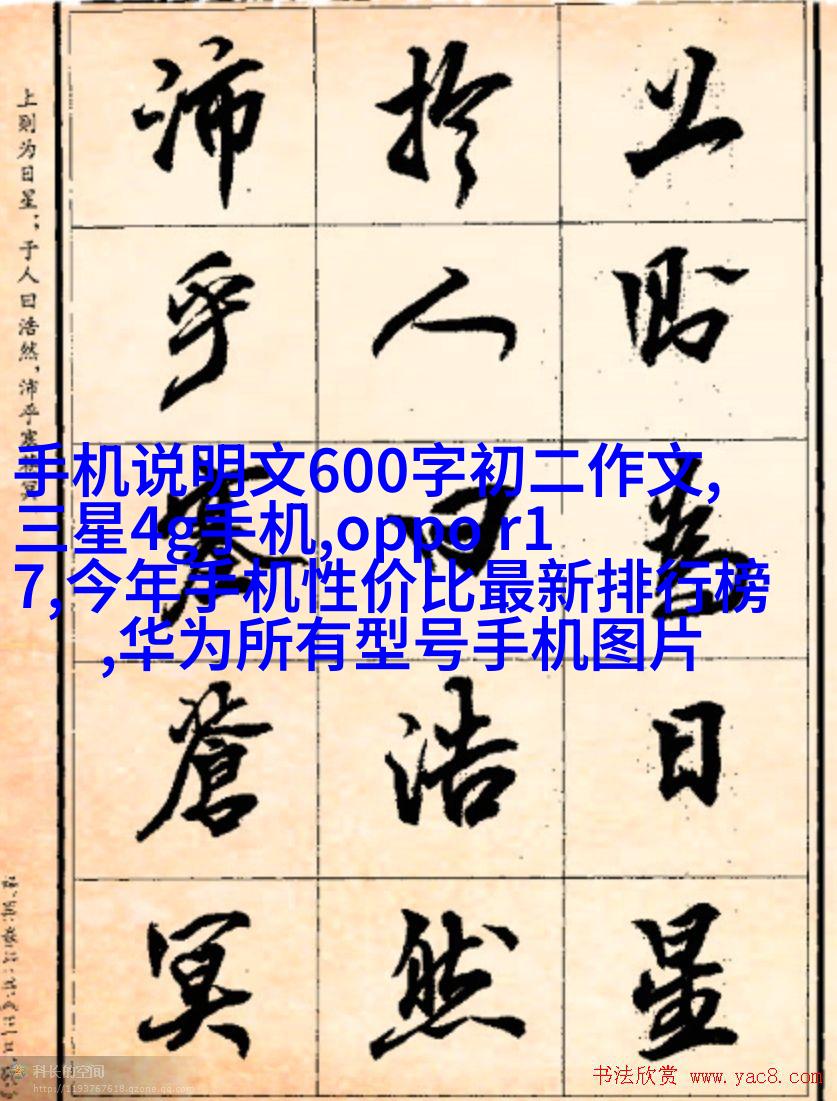 上則為日星
扵人曰浩然
沛乎塞蒼冥
上则为日星；于人曰浩然，沛乎塞苍冥
手机说明文600字初二作文,
三星4g手机,oppo r1
7,今年手机性价比最新排行榜
,华为所有型号手机图片
科长的空间
http://1193767618.qzone.qq.com
书法欣赏 www.yac8.com